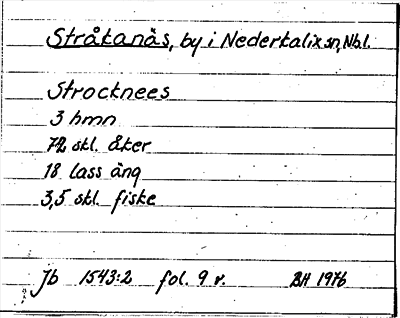 Stråkanäs, by i Nederkalix sn, Nbl.
Strocknees
3 hmn
72 skl. åker
18 lass äng
3,5 skl. fiske
Jb 1543:2 fol. 9 v. BH 1976